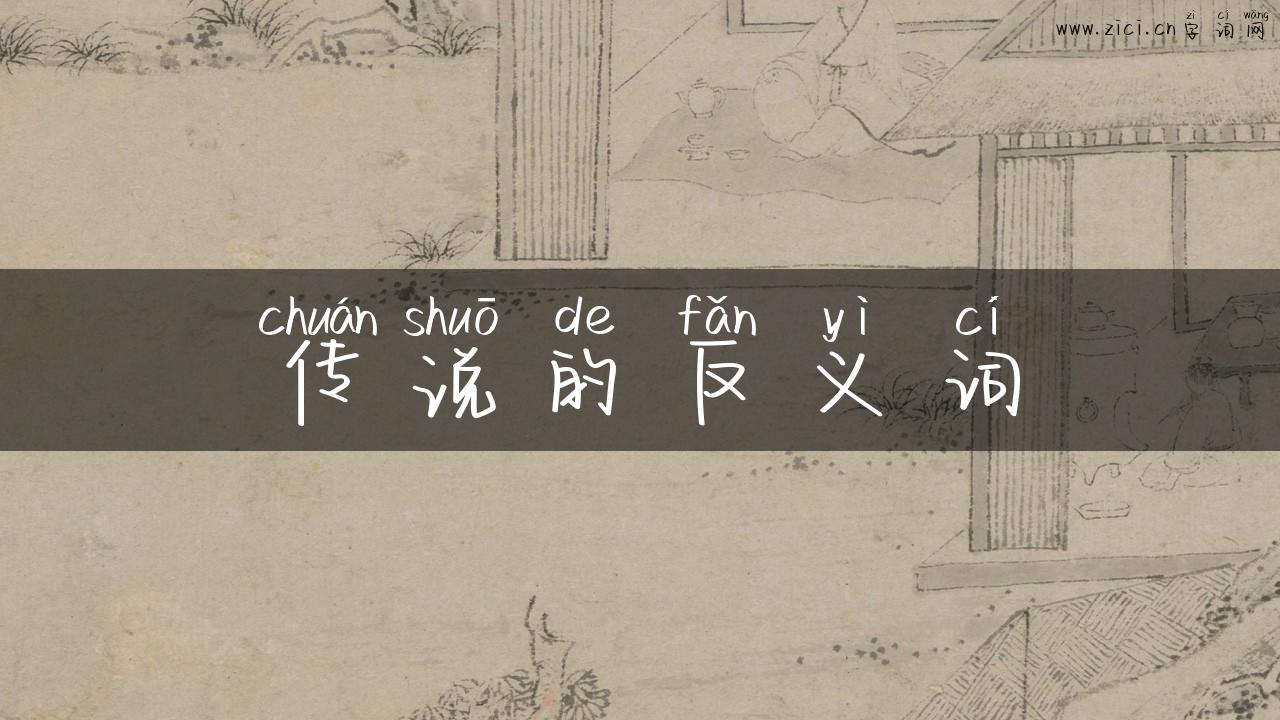 zì cí wǎng
www.zici.cn 字 词 网
chuán shuō de fǎn yì cí
传 说 的 反 义 词